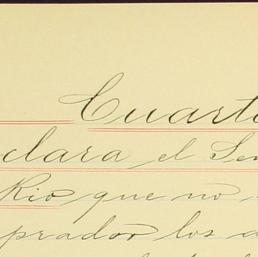 Cuarto
clara el Señ
Rio que no
prador los